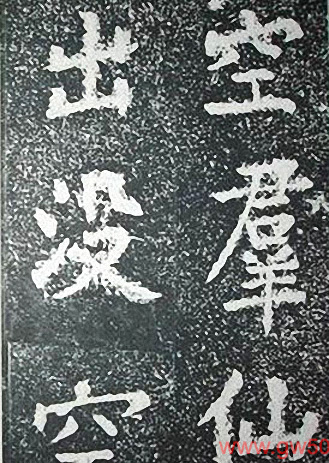 空羣仙
出没空
www.gw50